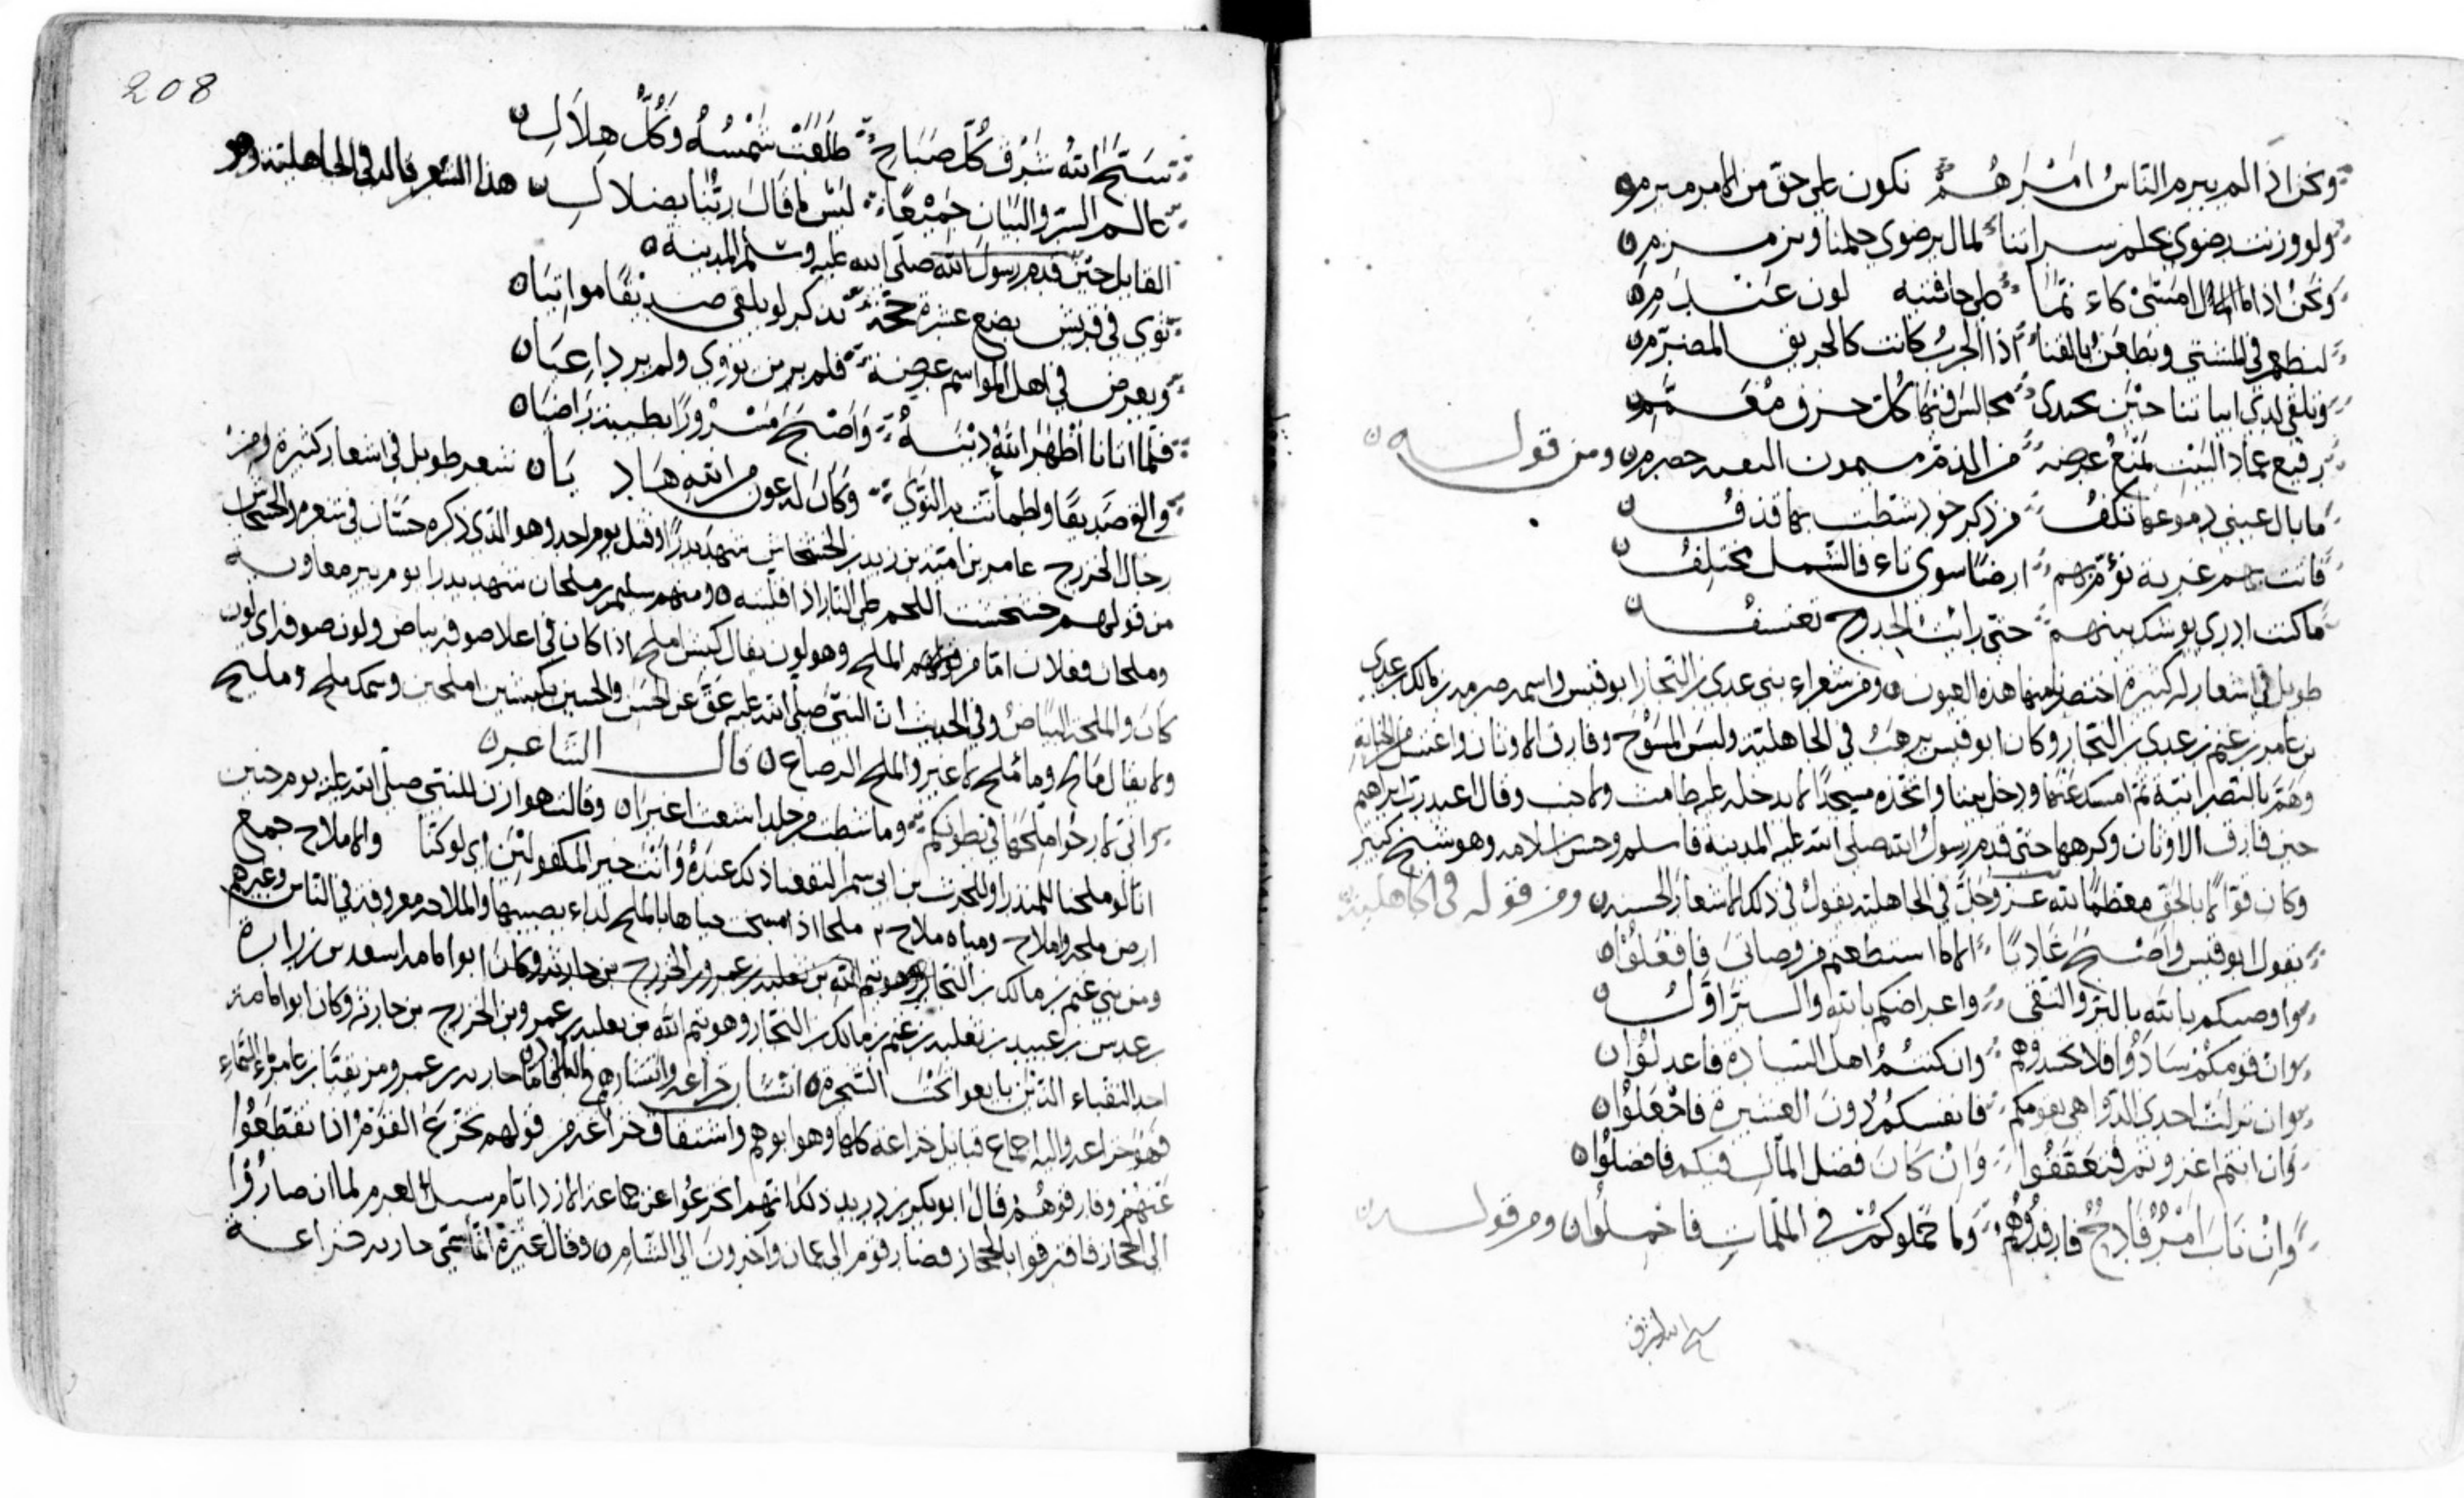 ونحن اذا لم يبرم الناس امرهم نكون على حق من الامر مبرم
ولو وزنت رضوى بحلم سراتنا لمال برضوى حلمنا ويرمرم
ونحن اذا ما امسى كاء نما على حافتيه لون عندم
لنطعم في المشتى ونطعن بالقنا اذا الحرب كانت كالحريق المضرم
وتلقى لدى ابياتنا حين نجتدى مجالس فيها كل خرق معمم
رفيع عماد البيت يمنع عرضه من الذم ميمون النقيبة خضرم ومن قوله
ما بال عيني دموعها تكف من ذكر خود شطت بها قذف
بانت بهم غربة تؤم بهم ارضا سوى ناء فالشمل مختلف
ما كنت ادري بوشك بينهم حتى رايت الحدوج تعتسف
طويل في اشعار له كثيرة اختصرنا منها هذه العيون ومن شعراء بني عدي بن النجار ابو قيس واسمه صرمه بن مالك بن عدي
بن عامر بن غنم بن عدي بن النجار وكان ابو قيس ترهب في الجاهلية ولبس المسوح وفارق الاوثان واغتسل من الجنابة
وهم بالنصرانية ثم امسك عنها ودخل بيتا واتخذه مسجدا لا يدخله عليه طامث ولا جنب وقال اعبد رب ابراهيم
حين فارق الاوثان وكرهها حتى قدم رسول الله صلى الله عليه المدينة فاسلم وحسن اسلامه وهو شيخ كبير
وكان قوالا بالحق معظما لله عز وجل في الجاهلية يقول في ذلك الاشعار الحسنة ومن قوله في الجاهلية
يقول ابو قيس واصبح غاديا الا ما استطعتم من وصاتي فافعلوا
واوصيكم بالله بالبر والتقى واعراضكم بالله والبر اول
وان قومكم سادوا فلا تحسدوهم وان كنتم اهل السيادة فاعدلوا
وان نزلت احدى الدواهي بقومكم فانفسكم دون العشيرة فاجعلوا
وان انتم اعوزتم فتعففوا وان كان فضل المال فيكم فافضلوا
وان ناب امر فادح فارفدوهم وما حملوكم في الملمات فاحملوا ومن قوله
208
سبحوا لله شرق كل صباح طلعت شمسه وكل هلال
عالم السر والبيان جميعا ليس ما قال ربنا بضلال هذا الشعر قاله في الجاهلية وهو
القايل حين قدم رسول الله صلى الله عليه وسلم المدينه
ثوى في قريش بضع عشرة حجة يذكر لو يلقى صديقا مواتيا
ويعرض في اهل المواسم عرضه فلم ير من يؤوي ولم ير داعيا
فلما اتانا اظهر الله دينه واصبح مسرورا بطيبة راضيا
والفى صديقا واطمأنت به النوى وكان له عون من الله هاد يا شعر طويل في اشعار كثيرة ومن
رجال الخزرج عامر بن امية بن زيد بن الحسحاس شهد بدرا وقتل يوم احد وهو الذي ذكره حسان في شعره الحسحاس
من قولهم حسحست اللحم على النار اذا اقلبته ومنهم سليم بن ملحان شهد بدرا يوم بير معاويه
وملحان فعلان اما من قولهم الملح وهو لون يقال كبش املح اذا كان في اعلا صوفه بياض ولون صوفه اي لون
كان والملحة البياض وفي الحديث ان النبي صلى الله عليه عق عن الحسن والحسين بكبشين املحين وسمك ملح ومليح
ولا يقال مالح وما ملح لا غير والملح الرضاع قال الشاعر
واني لارجو ملحها في بطونكم وما بسطت من جلد اشعث اغبر وقالت هوازن للنبي صلى الله عليه يوم حنين
انا لو ملحنا للمنذر او للحرث بن ابي شمر لنفعنا ذلك عنده وانت خير المكفولين اي لو كنا والاملاح جمع
ارض ملحه واملاح ومياه ملاح ملحا اذا مسحت حياها بالملح لداء يصيبها والملاحه معروفه في الناس وغيرهم
ومن بني غنم بن مالك بن النجار وهو تيم الله بن ثعلبه بن عمرو بن الخزرج بن حارثه وكان ابو امامه اسعد بن زرارة
بن عدس بن عبيد بن ثعلبه بن غنم بن مالك بن النجار وهو تيم الله بن ثعلبه بن عمرو بن الخزرج بن حارثه وكان ابو امامه
احد النقباء الذين بايعوا تحت الشجرة انساب خزاعه واما حارثه بن عمرو مزيقيا بن عامر ماء السماء
فهو خزاعه واليه اجماع قبايل خزاعه كلها وهو ابوهم واشتقاق خزاعه من قولهم تخزع القوم اذا تقطعوا
عنهم وفارقوهم قال ابو بكر بن دريد ذلك انهم انخزعوا عن جماعه الازد ايام سيل العرم لما ان صاروا
الى الحجاز فافترقوا بالحجاز فصار قوم الى عمان واخرون الى الشام وقال غيره انما سمي حارثه خزاعه